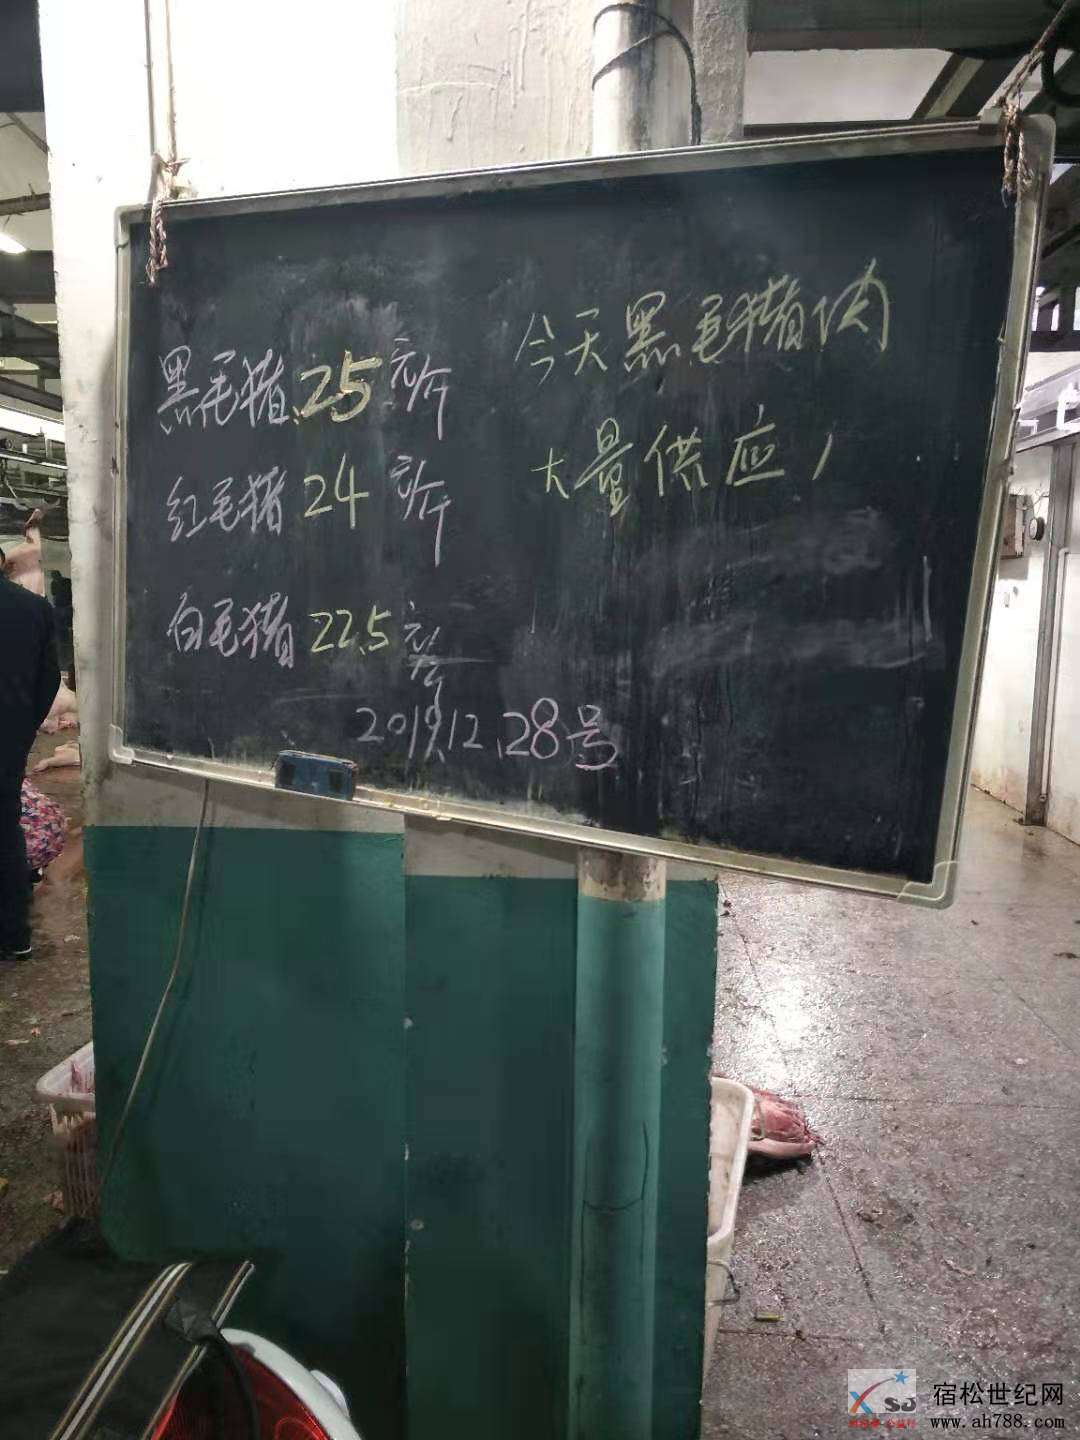 黑毛猪.25元/斤
红毛猪24元/斤
白毛猪22.5元/斤
2019.12.28号
今天黑毛猪肉
大量供应
XSJ
宿松世纪网
www.ah788.com